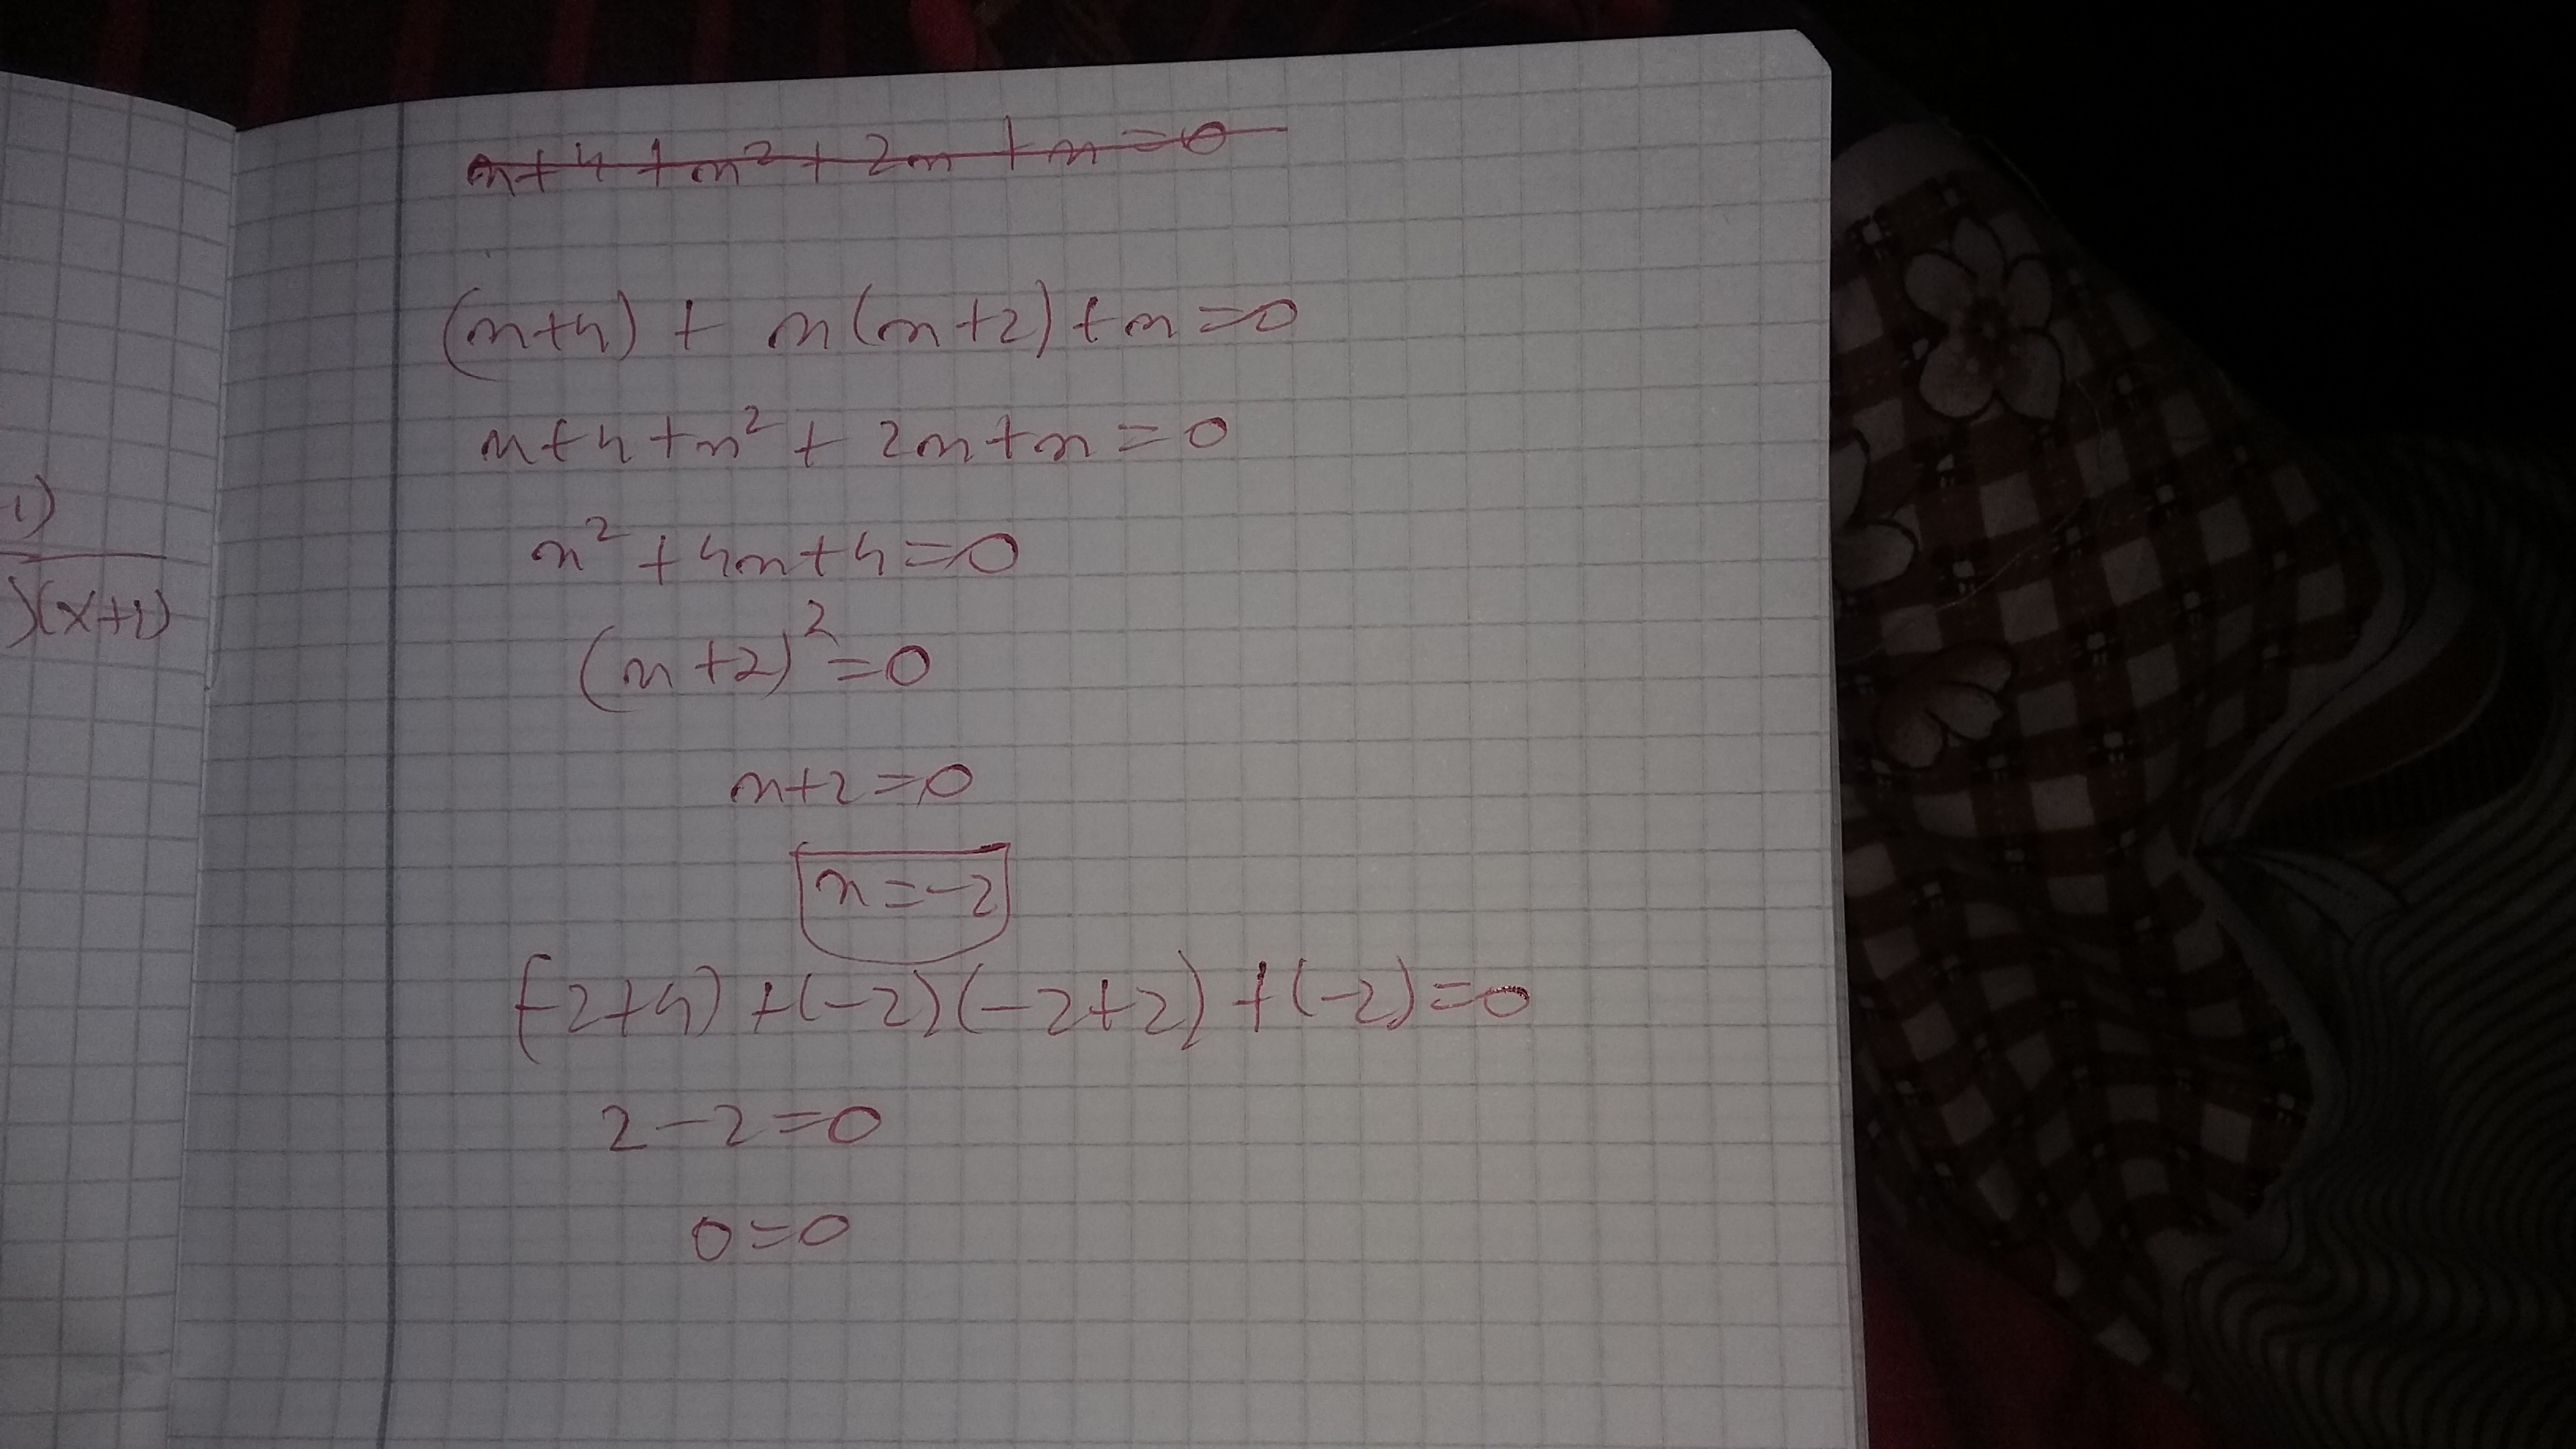 1)
)(x+1)
x+4+x²+2x+x=0
(x+4)+x(x+2)+x=0
x+4+x²+2x+x=0
x²+4x+4=0
(x+2)²=0
x+2=0
x=-2
(-2+4)+(-2)(-2+2)+(-2)=0
2-2=0
0=0